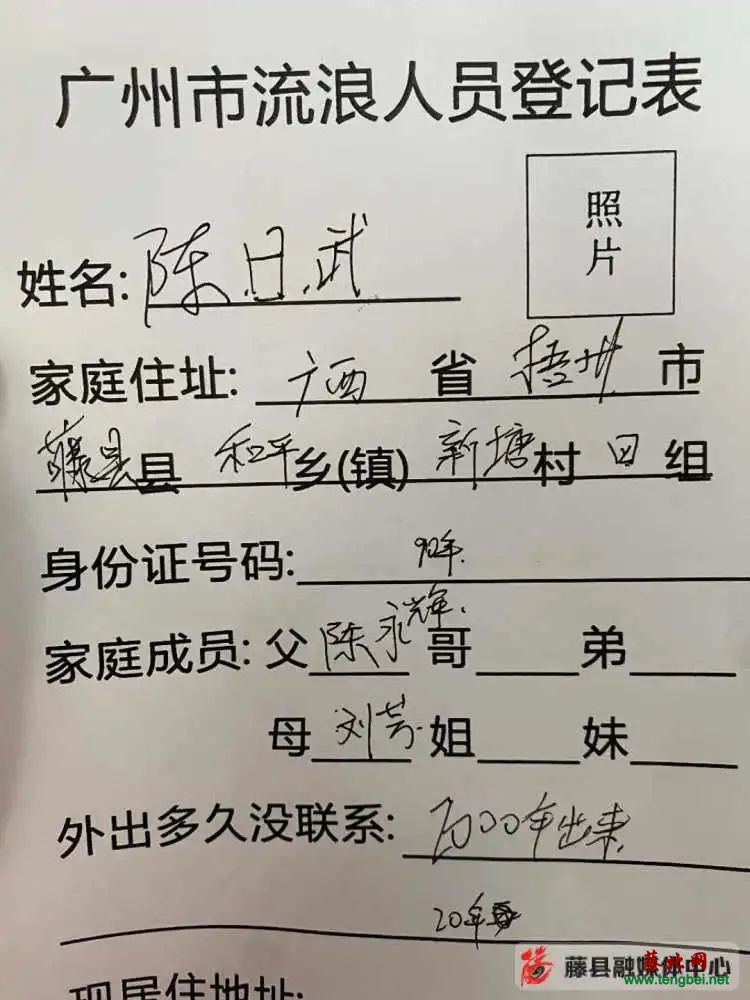 广州市流浪人员登记表
照片
姓名: 陈日武
家庭住址: 广西 省 梧州 市
藤县县 和平乡(镇) 新塘村 田 组
身份证号码: 90年
家庭成员: 父 陈永辉 哥 弟
母 刘芳 姐 妹
外出多久没联系: 2000年出来
20年
现居住地址:
藤县融媒体中心
藤北网
www.tengbei.net